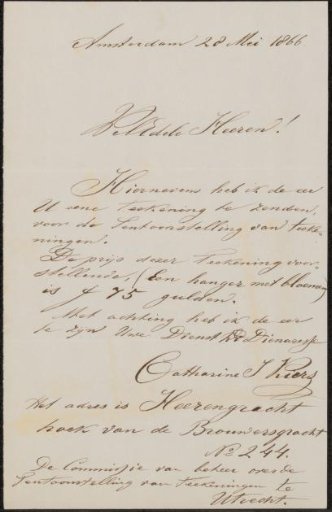 Amsterdam 28 Mei 1866
WelEdele Heeren!
Hiernevens heb ik de eer
U eene Teekening te zenden,
voor de Tentoonstelling van Teeke-
ningen.
De prijs dezer Teekening voor-
stellende, (Een hanger met bloemen)
is f 75 gulden.
Met achting heb ik de eer
te zijn Uwe Dienstw Dienaresse
Catharine J Kiers
Het adres is Heerengracht
hoek van de Brouwersgracht
No 244.
De Commissie van beheer over de
Tentoonstelling van Teekeningen te
Utrecht.